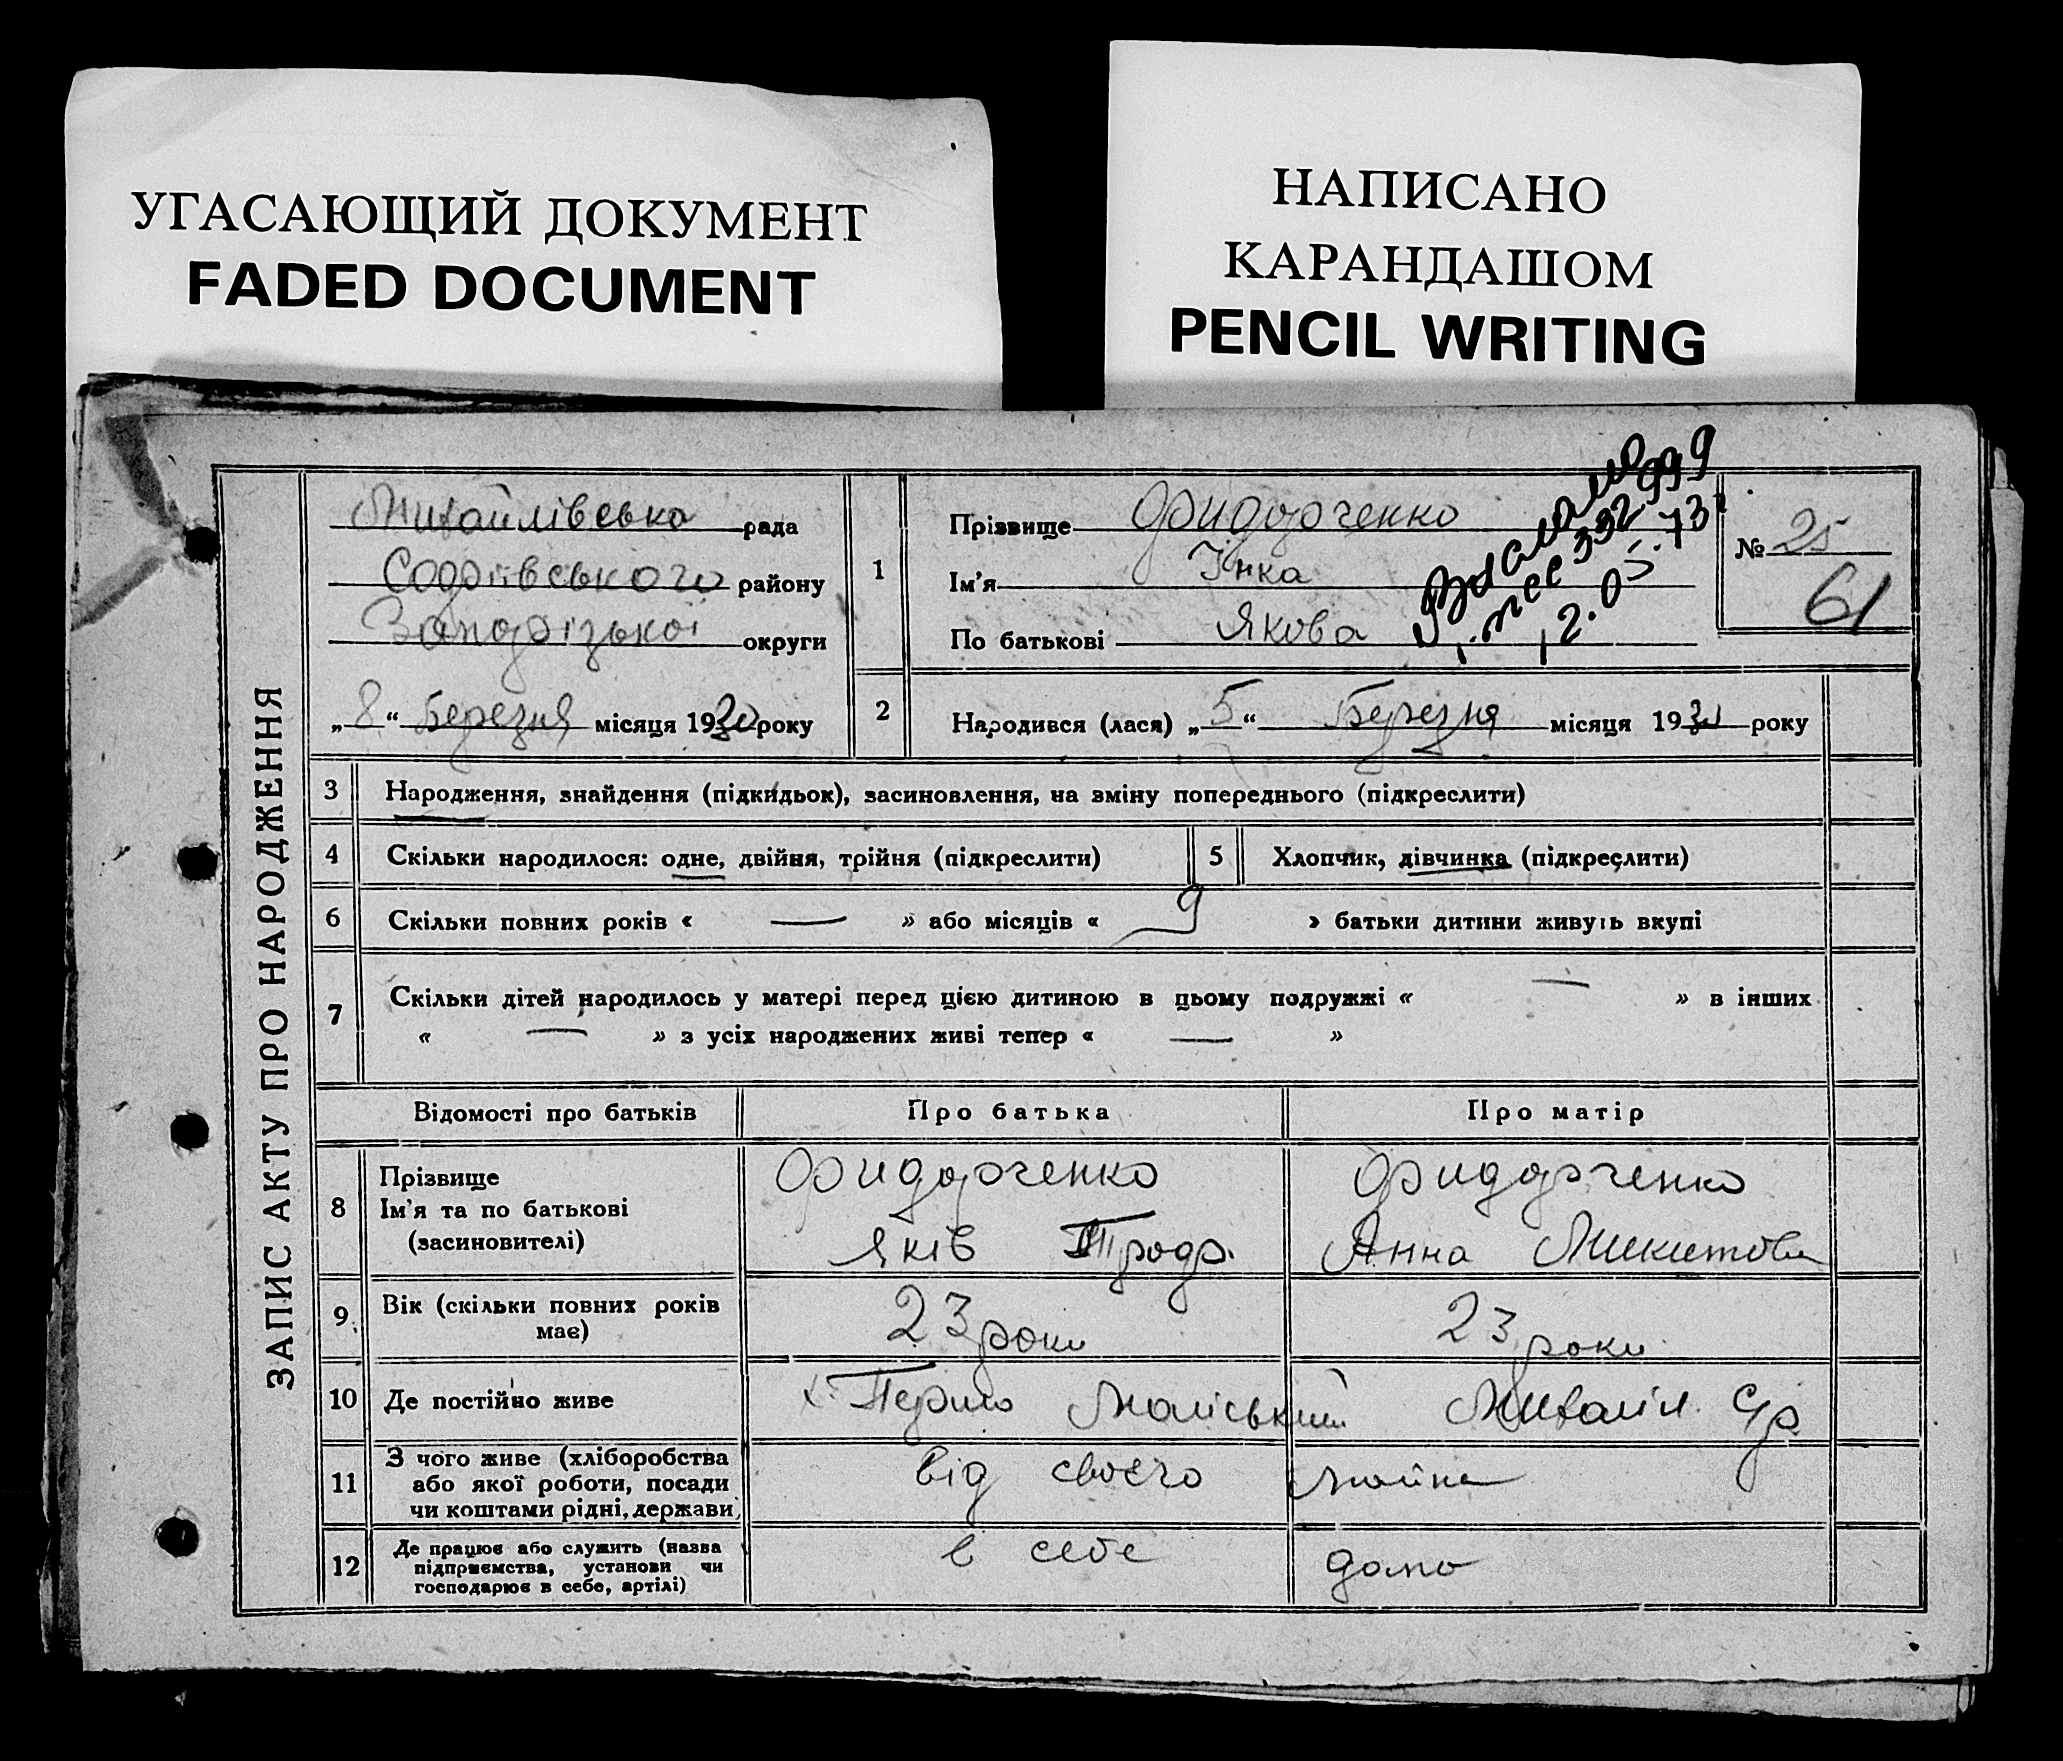 УГАСАЮЩИЙ ДОКУМЕНТ
FADED DOCUMENT
НАПИСАНО
КАРАНДАШОМ
PENCIL WRITING
ЗАПИС АКТУ ПРО НАРОДЖЕННЯ
Михайлівська рада
району
Запорізької округи
„8“ Березня місяця 1930 року
1
Прізвище Фидорченко
Ім’я Інка
По батькові Якова
332 999
12.05.73
№ 25
61
2 Народився (лася) „5“ Березня місяця 1930 року
3 Народження, знайдення (підкидьок), засиновлення, на зміну попереднього (підкреслити)
4 Скільки народилося: одне, двійня, трійня (підкреслити) 5 Хлопчик, дівчинка (підкреслити)
6 Скільки повних років « — » або місяців « 9 » батьки дитини живуть вкупі
7 Скільки дітей народилось у матері перед цією дитиною в цьому подружжі « — » в інших
« — » з усіх народжених живі тепер « — »
Відомості про батьків Про батька Про матір
8 Прізвище
Ім’я та по батькові
(засиновителі)
Фидорченко
Яків
Фидорченко
Анна Микитовн
9 Вік (скільки повних років
має)
23 роки
23 роки
10 Де постійно живе
х. Перш Майський Михайл. Ср
11 З чого живе (хліборобства
або якої роботи, посади
чи коштами рідні, держави)
від своєго майна
12 Де працює або служить (назва
підприємства, установи чи
господарює в себе, артілі)
в себе дома